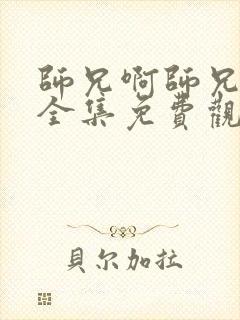 師兄啊師兄
全集免費觀
貝尔加拉